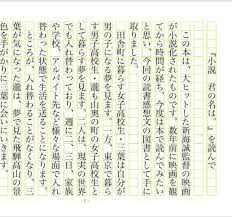 『小説 君の名は。』を読んで
この本は、大ヒットした新海誠監督の映画
が小説化されたものです。数年前に映画を観
てから時間が経ち、今度は本で読んでみたい
と思い、今回の読書感想文の図書として手に
取りました。
田舎町に暮らす女子高校生・三葉は自分が
男の子になる夢を見ます。一方、東京で暮ら
す男子高校生・瀧も山奥の町で女子高校生と
して暮らす夢を見ます。二人は、現実の世界
でも入れ替わっており、週に二、三回、家族
や学校、アルバイトなど様々な場面で入れ
替わった状態で生活を送ることになります。
ところが、入れ替わることがなくなり、三
葉が気になった瀧は、夢で見た飛騨高山の景
色を手がかりに三葉に会いにいきます。
- 1 -